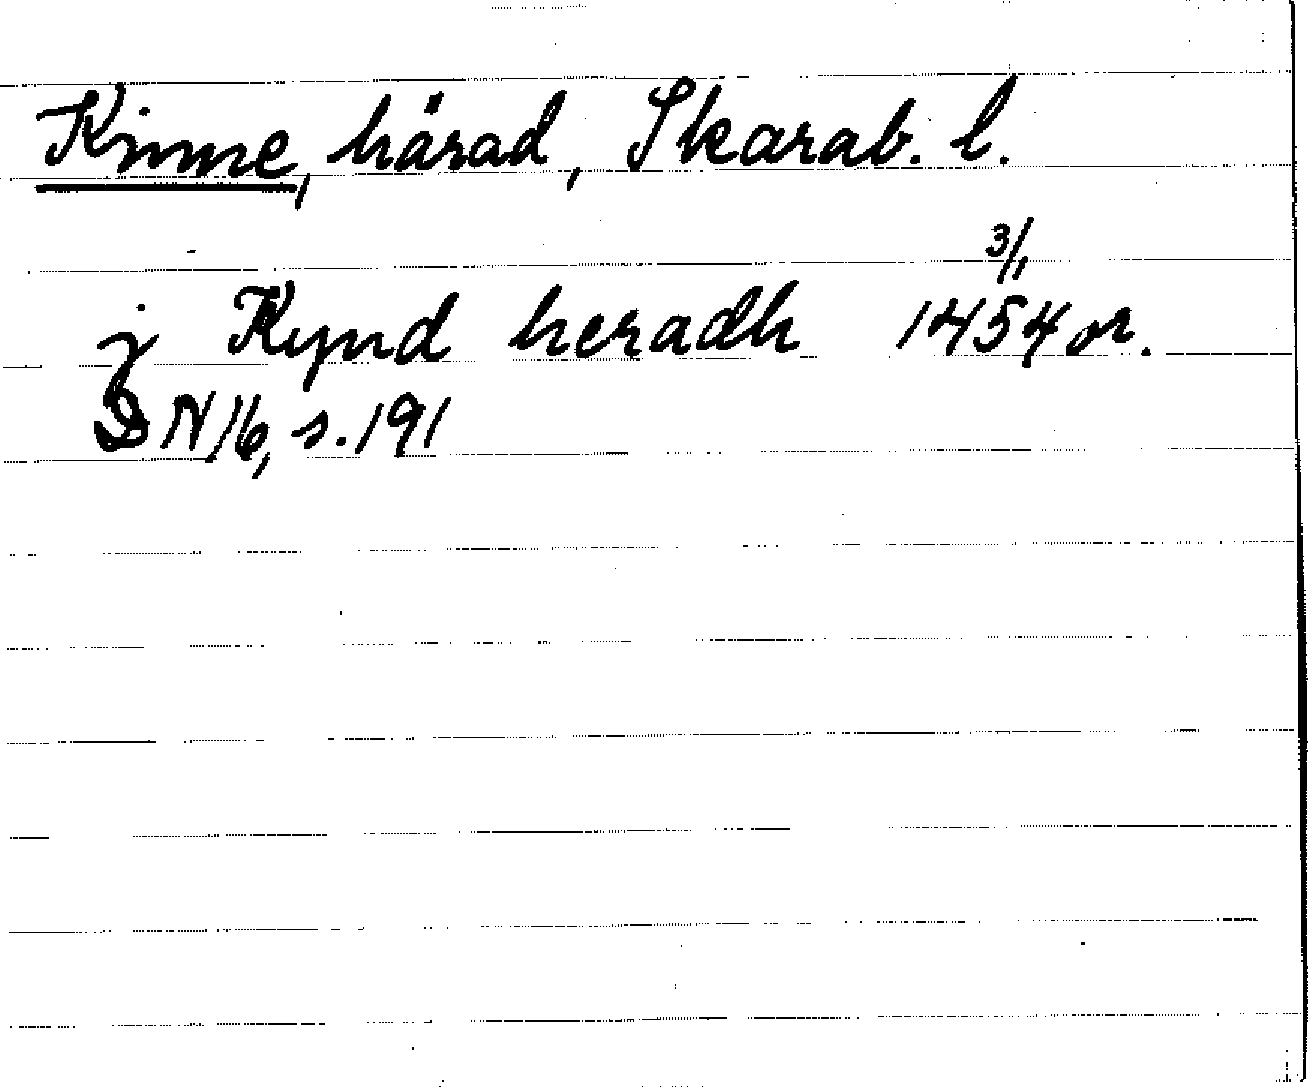 Kinne, härad, Skarab. l.
j Kynd heradh 3/1 1454 or.
DN 16, s. 191